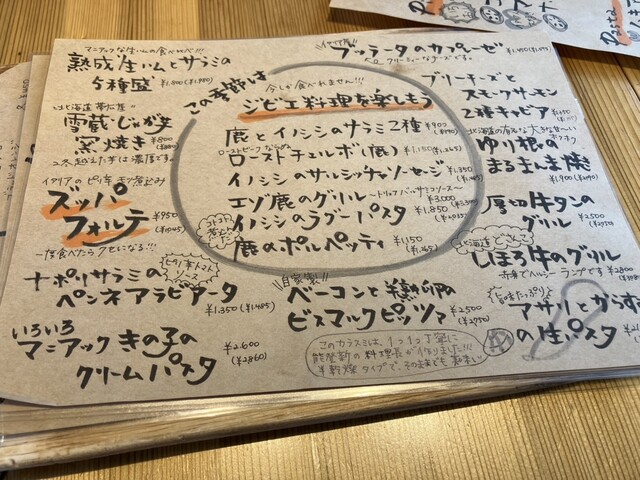 マニアックな生ハムの食べ比べ!!!
熟成生ハムとサラミの
5種盛 ¥1,800(¥1,980)
北海道 帯広産
雪蔵じゃがを
窯焼き ¥800
イタリアのピリ辛モツ煮込み
ズッパ
フォルテ ¥950
(¥1045)
一度食べたらクセになる!!!
この季節は
今しか食べれません!!!
ジビエ料理を楽しもう
鹿とイノシシのサラミ2種 ¥900
(¥990)
ローストビーフならぬ
ローストチェルボ(鹿) ¥1,150(¥1,265)
イノシシのサルシッチャソーセージ ¥1,350
エゾ鹿のグリル ¥3,000
イノシシのラグーパスタ ¥1,850
鹿のポルペッティ ¥1,150
(¥1,265)
ブッラータのカプレーゼ
クリーミューなチーズです。
ブリーチーズと
スモークサーモン
2種キャビア
ゆり根の
まるまんま焼き
¥1,900
厚切牛タンの
グリル ¥2,500
北海道
しほろ牛のグリル
赤身でヘルシーランプです ¥2800
アサリとからす
の生パスタ
ピリ辛トマト
ソース
ナポリサラミの
ペンネアラビアータ
¥1,350(¥1,485)
自家製!!
ベーコンと半熟卵の
ビスマルクピッツァ ¥2500
いろいろ
マニアックきの子の
クリームパスタ ¥2,600
(¥2860)
このカラスミは、1つ1つ丁寧に
能登勤の料理長が作りました!!!
半乾燥タイプで、そのままでも美味い